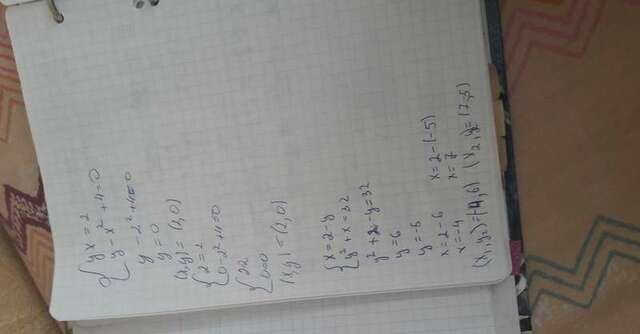 {yx=2
y-x²+4=0
y-2²+4=0
y=0
(x,y)=(2,0)
{2=2
0-2²+4=0
{22
0=0
(x,y)=(2,0)
{x=2-y
y²+x=32
y²+2-y=32
y=6
y=-5
x=2-6 x=2-(-5)
x=-4 x=7
(x₁,y₂)=(-4,6) (x₂,y₂)=(7,-5)